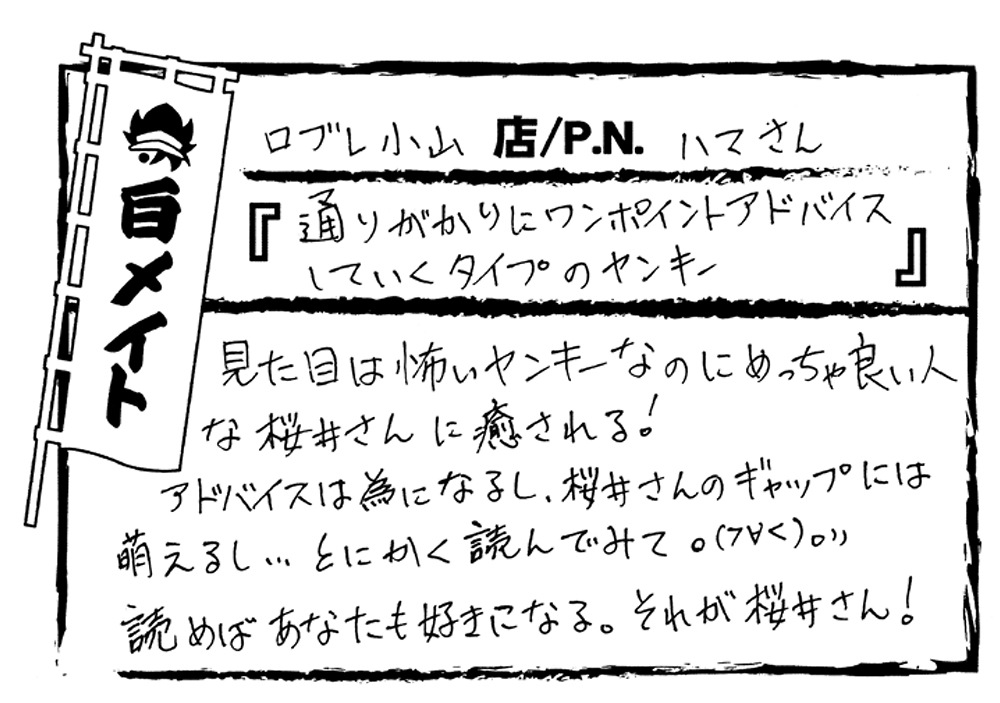 白メイト
ロブレ小山 店/P.N. ハマさん
『通りがかりにワンポイントアドバイス
していくタイプのヤンキー』
見た目は怖いヤンキーなのにめっちゃ良い人
な桜井さんに癒される!
アドバイスは為になるし、桜井さんのギャップには
萌えるし…とにかく読んでみて。(7∀く)。))
読めばあなたも好きになる。それが桜井さん!